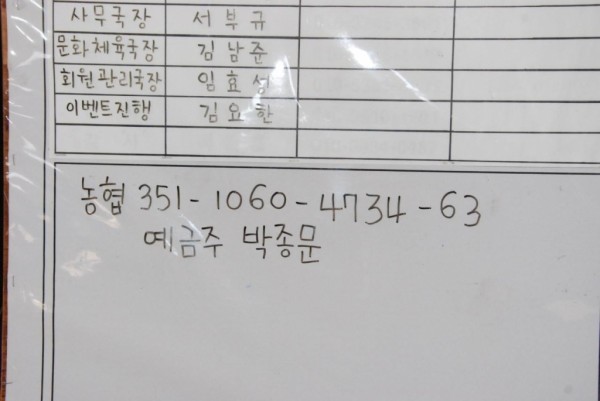 사무국장 서부규
문화체육국장 김남준
회원관리국장 임효성
이벤트진행 김요한
농협 351-1060-4734-63
예금주 박종문